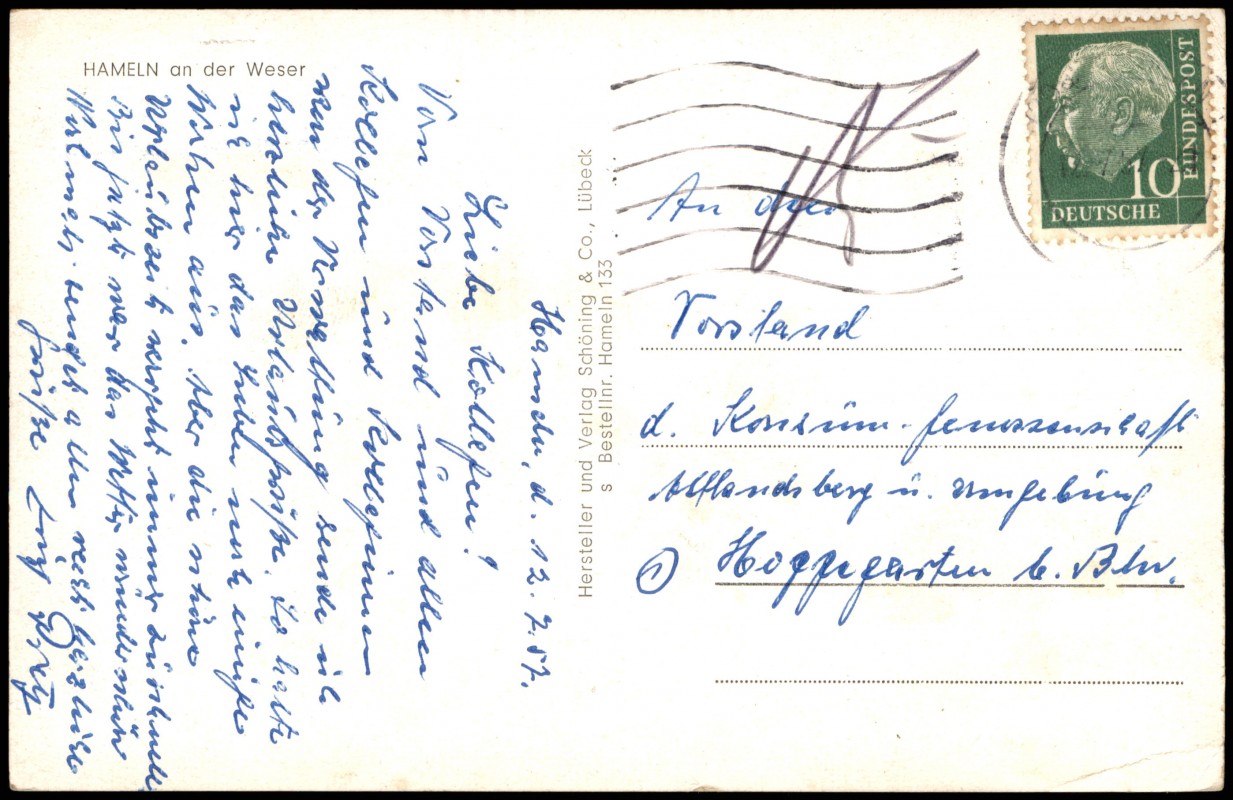 HAMELN an der Weser
Hameln, d. 12. 7. 57.
Liebe Kollegen!
Vom Vorstand und allen
Kollegen und Kolleginnen
der Verwaltung sende ich
herzliche Urlaubsgrüße. So halte
ich hier das Leben noch einige
Wochen aus. Aber die schöne
Urlaubszeit vergeht immer zu schnell
Bis jetzt war das Wetter wunderschön
Nochmals sendet allen recht herzliche
Grüße
Hersteller und Verlag Schöning & Co., Lübeck
s Bestellnr. Hameln 133
DEUTSCHE
BUNDESPOST
10
An den
Vorstand
d. Konsum-Genossenschaft
Altlandsberg u. Umgebung
Hoppegarten b. Bln.